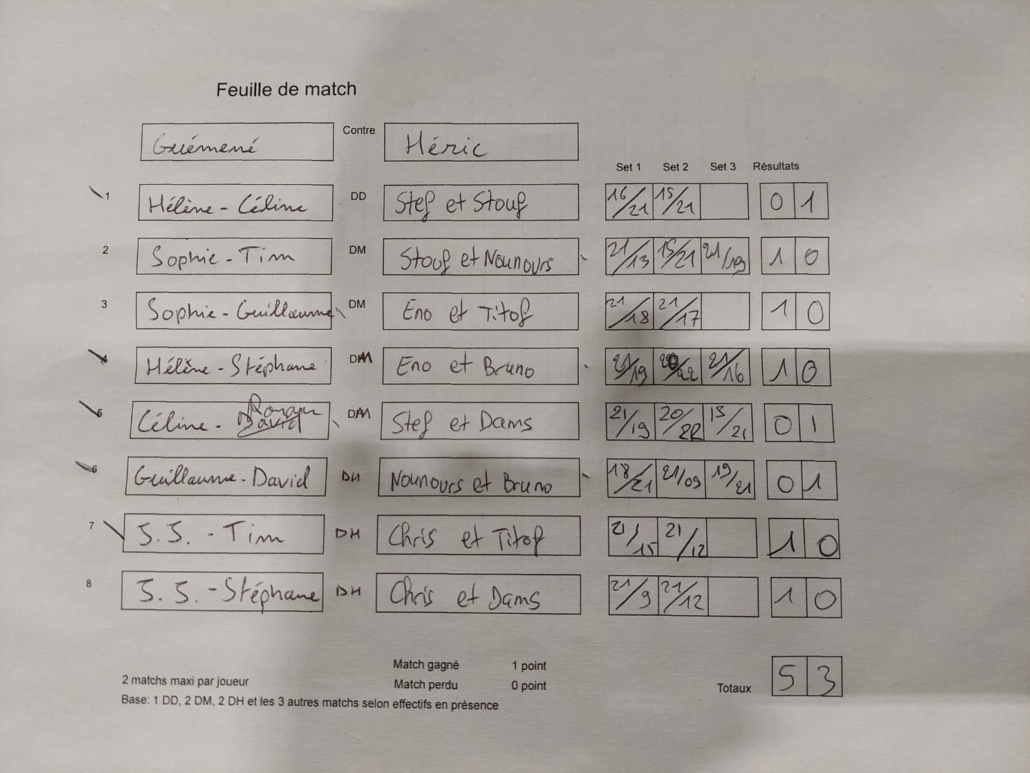 Feuille de match
Guémené Contre Héric
Set 1 Set 2 Set 3 Résultats
1 Hélène - Céline DD Stef et Stouf 16/21 15/21 0 1
2 Sophie - Tim DM Stouf et Nounours 21/13 15/21 21/19 1 0
3 Sophie - Guillaume DM Eno et Titof 21/18 21/17 1 0
4 Hélène - Stéphane DM Eno et Bruno 21/19 20/22 21/16 1 0
5 Céline - Ronan DM Stef et Dams 21/19 20/22 15/21 0 1
6 Guillaume - David DH Nounours et Bruno 18/21 21/09 19/21 0 1
7 J.J. - Tim DH Chris et Titof 21/15 21/12 1 0
8 J.J. - Stéphane DH Chris et Dams 21/9 21/12 1 0
Match gagné 1 point
2 matchs maxi par joueur Match perdu 0 point Totaux 5 3
Base: 1 DD, 2 DM, 2 DH et les 3 autres matchs selon effectifs en présence